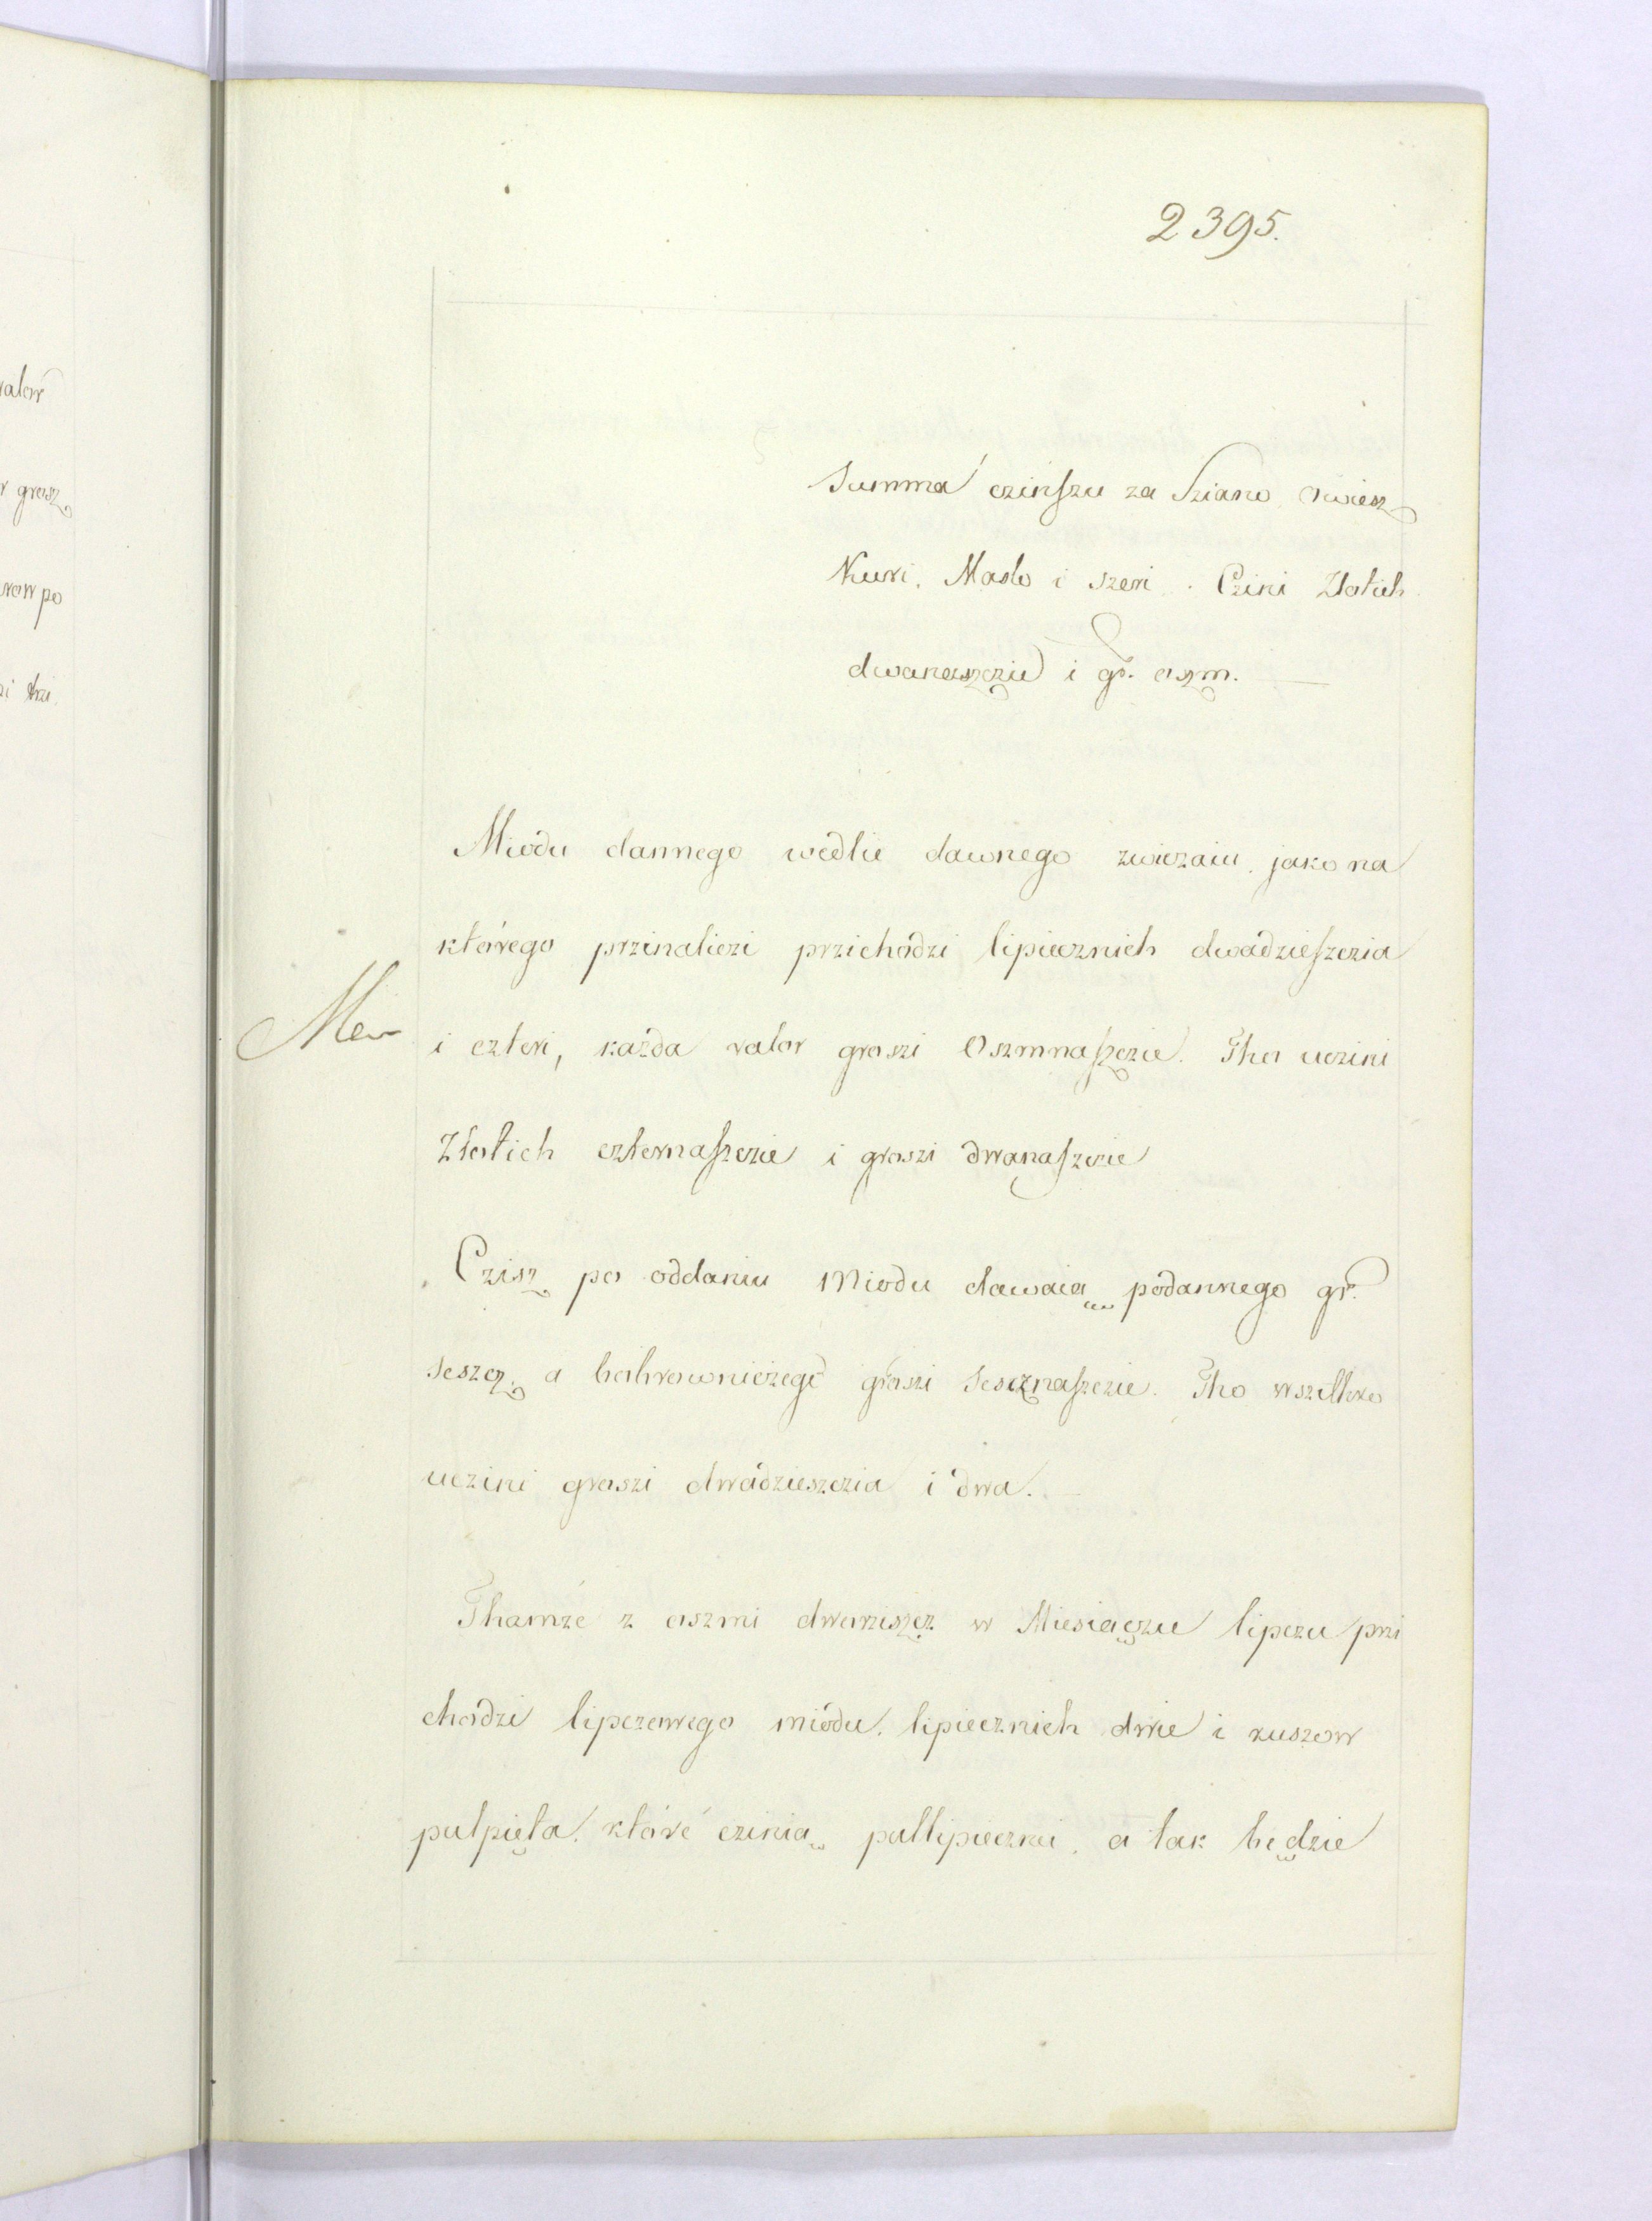 2395.
Summa czinszu za Sziano, owiesz
Kuri, Maslo i szeri. Czini Zlotich
dwanaszczie i gr. oszm.
Miodu dannego wedlie dawnego zwiczaiu, jako na
którego przinaliezi przichodzi lipiecznich dwadzieszczia
Mer
i czteri, kazda valor groszi Oszmnaszczie. Tho uczini
Zlotich czternaszczie i groszi dwanaszczie
Czisz po oddaniu Miodu dawaią podannego gr.
seszcz, a bobrowniczego groszi sescznaszczie. Tho wszithko
uczini groszi dwadzieszczia i dwa.
Thamze z oszmi dworziszcz w Miesiączu lipczu pri
chodzi lipczowego miodu, lipiecznich dwie i ruszow
pulpięta, któré czinią pullipieczni, a tak będzie
valor
r grosz
row po
zi tri